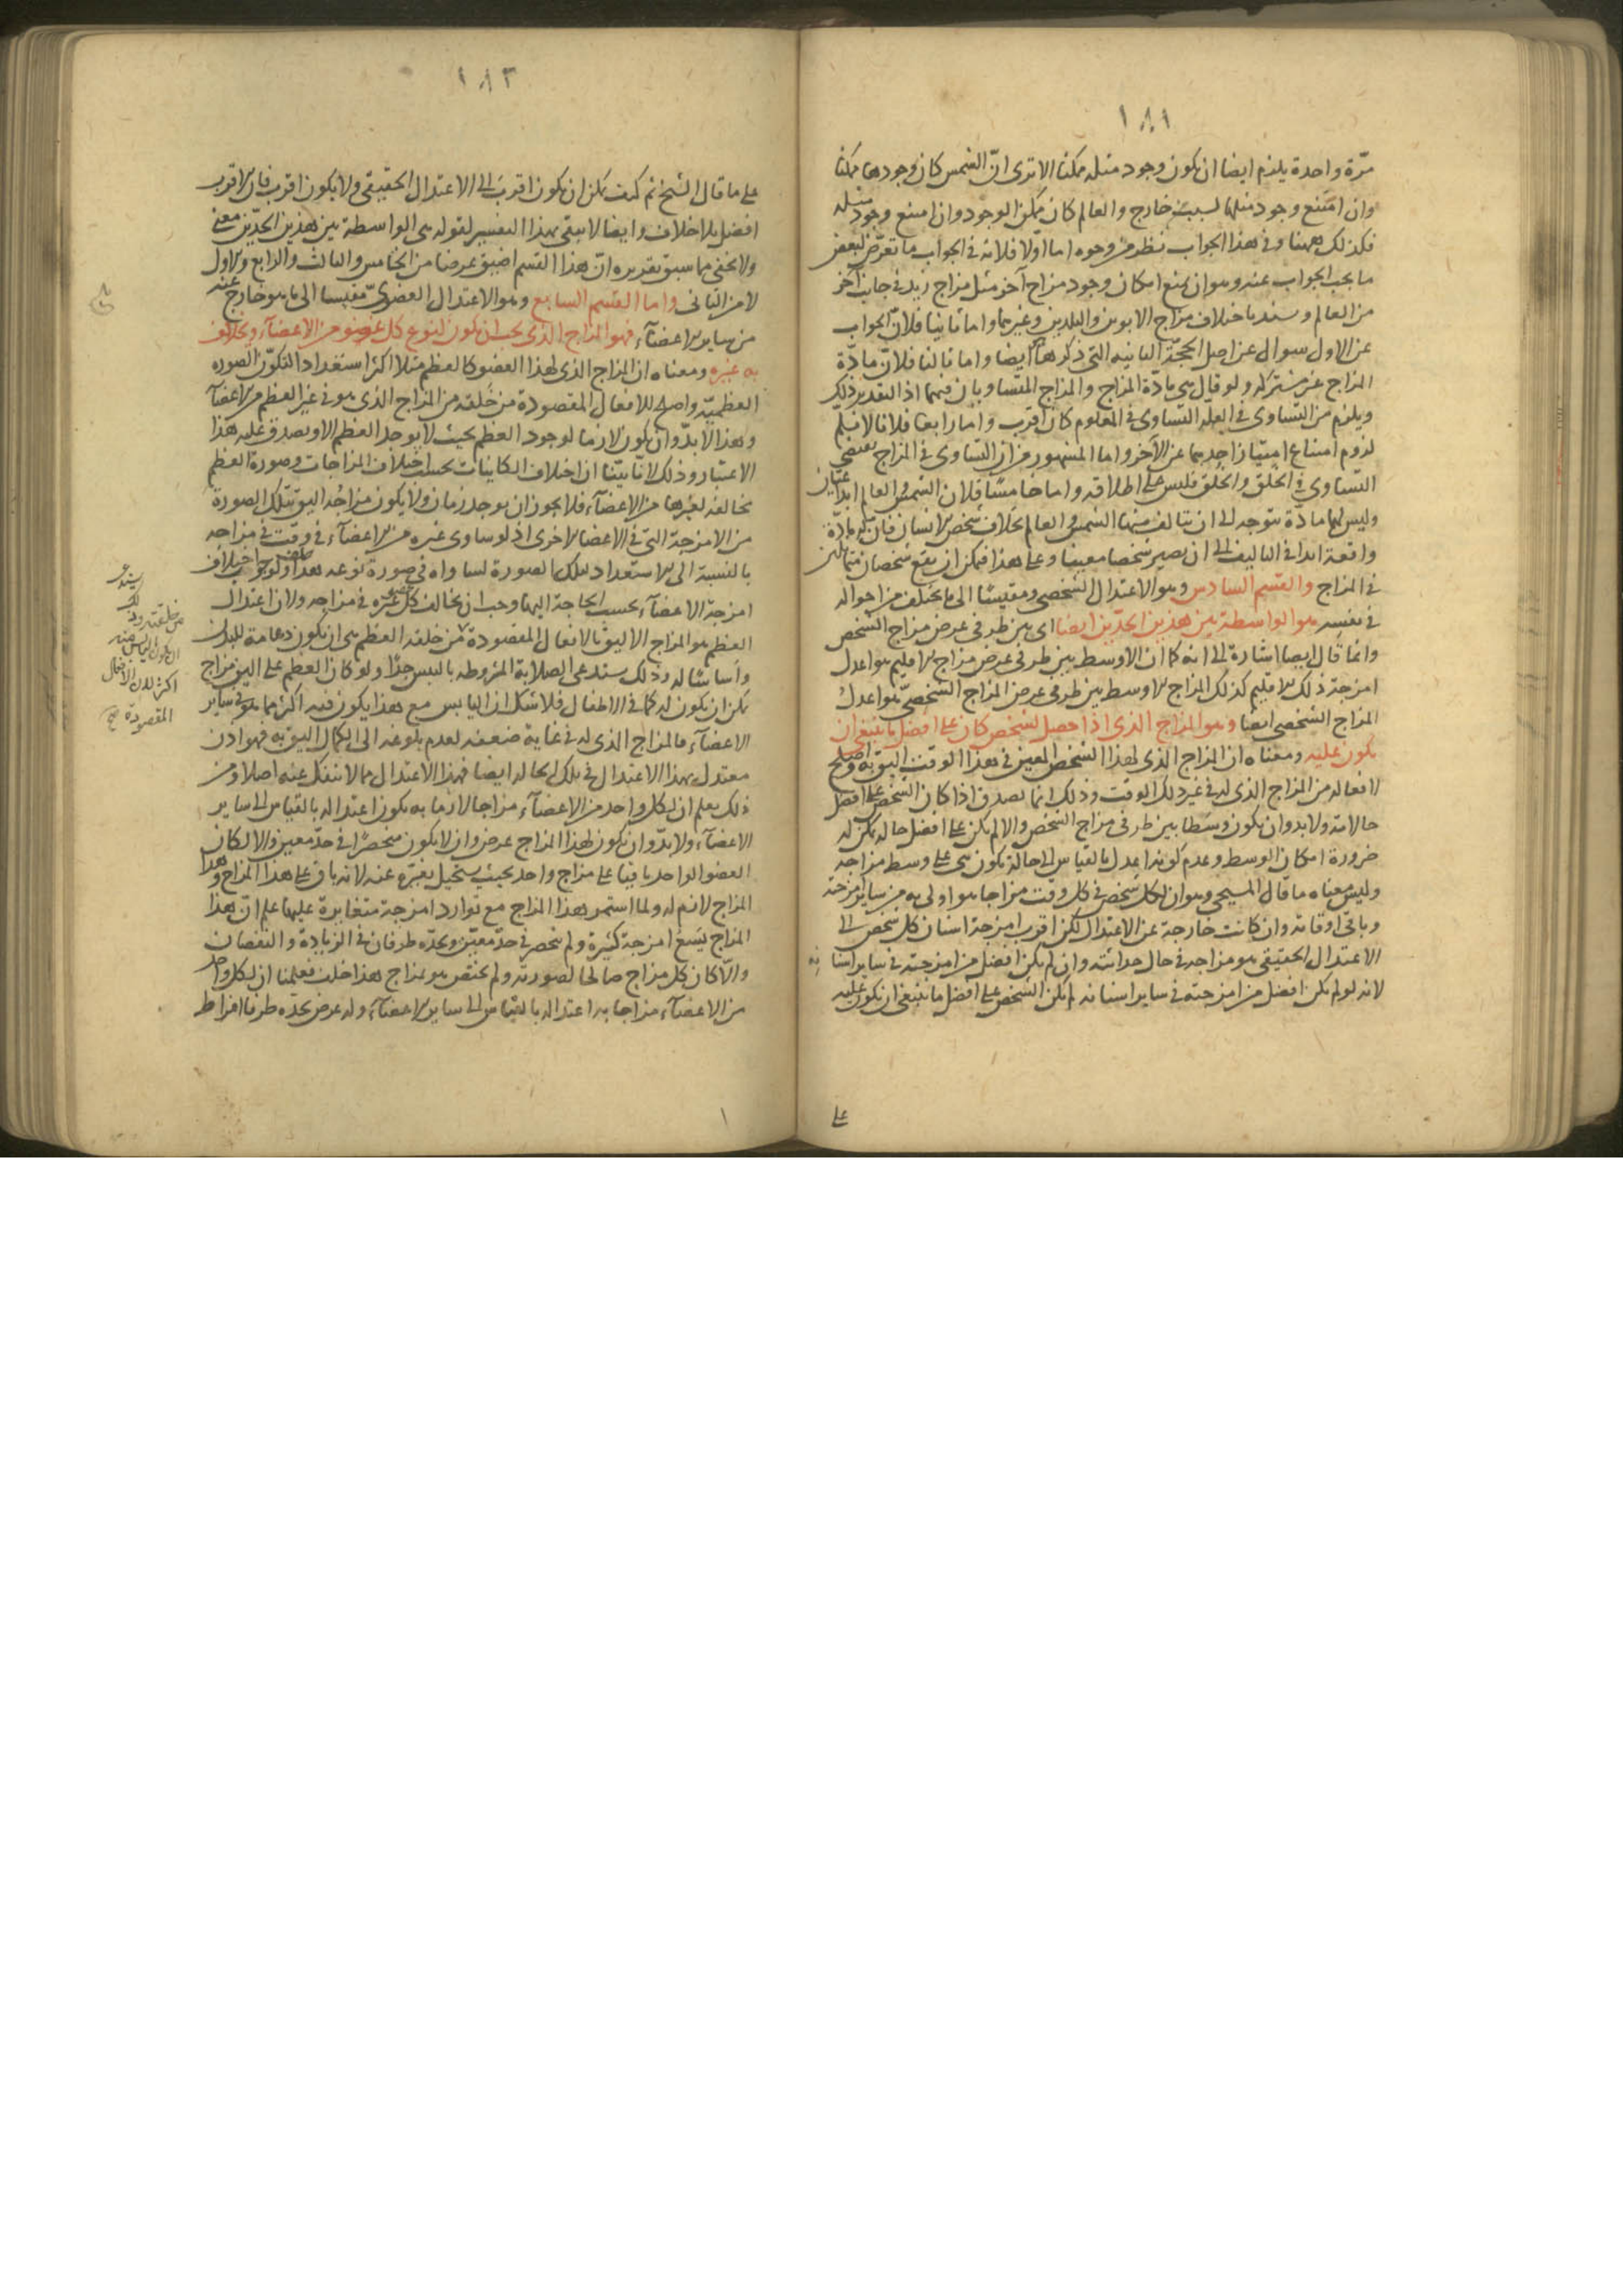 ١٨١
مرّة واحدة يلزم ايضا ان يكون وجود مثله ممكنا الا ترى انّ الشمس كان وجودها ممكنا
وان امتنع وجود مثلها لسبب خارج والعالم كان ممكن الوجود وان امتنع وجود مثله
فكذلك ههنا وفى هذا الجواب نظر من وجوه اما اولا فلانه فى الجواب ما تعرّض لبعض
ما يجب الجواب عنه وهو ان يمنع امكان وجود مزاج آخر مثل مزاج زيد فى جانب آخر
من العالم وسنده باختلاف مزاج الابوين والبلدين وغيرهما واما ثانيا فلانّ الجواب
عن الاول سوال عن اصل الحجّة الثانيه التى ذكرها ايضا واما ثالثا فلانّ مادّة
المزاج غير مشتركه ولو قال هى مادّة المزاج والمزاج المتساويان فيهما اذ التقدير ذلك
ويلزم من التساوى فى العلة التساوى فى المعلول كان اقرب واما رابعا فلانا لا نسلم
لزوم امتناع امتياز احدهما عن الآخر واما المشهور من ان التساوى فى المزاج يقتضى
التساوى فى الخلق والخلق فليس على اطلاقه واما خامسا فلان الشمس والعالم ابداعيان
وليس لهما مادّة تتوجه الى ان يتالف منها الشمس والعالم بخلاف شخص الانسان فان له مادّة
واقعة ابدا فى التاليف الى ان يصير شخصا معينا وعلى هذا فيمكن ان يقع شخصان متماثلين
فى المزاج والقسم السادس وهو الاعتدال الشخصى ومقيسا الى ما يختلف من احواله
فى نفسه هو الواسطة بين هذين الحدّين ايضا اى بين طرفى عرض مزاج الشخص
وانما قال ايضا اشارة الى انه كما ان الاوسط بين طرفى عرض مزاج الاقليم هو اعدل
امزجة ذلك الاقليم كذلك المزاج الاوسط بين طرفى عرض المزاج الشخصىّ هو اعدل
المزاج الشخصى ايضا وهو المزاج الذى اذا حصل لشخص كان على افضل ما ينبغى ان
يكون عليه ومعناه ان المزاج الذى لهذا الشخص المعين فى هذا الوقت اليق به واصلح
لافعاله من المزاج الذى له فى غير ذلك الوقت وذلك انما يصدق اذا كان الشخص على افضل
حالاته ولا بد وان يكون وسطا بين طرفى مزاج الشخص والا لم يكن على افضل حاله يمكن له
ضرورة امكان الوسط وعدم كونه اعدل بالقياس الى حالة يكون هى على وسط مزاجه
وليس معناه ما قال المسيحى وهو ان لكل شخص فى كل وقت مزاجا هو اولى به من ساير امزجته
وباقى اوقاته وان كانت خارجة عن الاعتدال لكن اقرب امزجة اسنان كل شخص الى
الاعتدال الحقيقى هو مزاجه فى حال حداثته وان لم يكن افضل من امزجته فى ساير اسنانه
لانه لو لم يكن افضل من امزجته فى ساير اسنانه لم يكن الشخص على افضل ما ينبغى ان يكون عليه
على
١٨٢
على ما قال الشيخ ثم كيف يمكن ان يكون اقرب الى الاعتدال الحقيقى ولا يكون افضل فان الاقرب
افضل بلا خلاف وايضا لا يبقى بهذا التفسير لقوله هى الواسطة بين هذين الحدّين معنى
ولا يخفى مما سبق تقديره انّ هذا القسم اضيق عرضا من الخامس والثالث والرابع والاول
لا من الثانى واما القسم السابع وهو الاعتدال العضوىّ مقيسا الى ما هو خارج عنه
من ساير الاعضآء فهو المزاج الذى يجب ان يكون لنوع كل عضو من الاعضآء ويخالف
به غيره ومعناه ان المزاج الذى لهذا العضو كالعظم مثلا اكثر استعدادا لتكوّن الصوره
العظميّه واصلح للافعال المقصودة من خلقه من المزاج الذى هو فى غير العظم من الاعضآء
وهذا لا بدّ وان يكون لازما لوجود العظم بحيث لا يوجد العظم الا ويصدق عليه هذا
الاعتبار وذلك لانّا بيّنا ان اختلاف الكاينات بحسب اختلاف المزاجات وصورة العظم
مخالفة لغيرها من الاعضآء فلا يجوز ان يوجد زمان ولا يكون مزاجه اليق بتلك الصورة
من الامزجة التى فى الاعضا الاخرى اذ لو ساوى غيره من الاعضآء فى وقت فى مزاجه
بالنسبة الى الاستعداد لتلك الصورة لساواه فى صورة نوعه هذا خلف ولوجوب اختلاف
امزجة الاعضآء بحسب الحاجة اليها وجب ان يخالف كل عضو غيره فى مزاجه ولان اعتدال
العظم هو المزاج الاليق بالافعال المقصودة من خلقه العظم هى ان يكون دعامة للبدن
واساسا له وذلك يستدعى الصلابة المشروطه باليبس جدّا ولو كان العظم على الين مزاج
يمكن ان يكون له كما فى الاطفال فلا شك ان اليابس مع هذا يكون فيه اكثر مما هو فى ساير
الاعضآء فالمزاج الذى له فى غاية ضعفه لعدم بلوغه الى الكمال اليق به فهو اذن
معتدل بهذا الاعتدال فى تلك الحاله ايضا فهذا الاعتدال مما لا ينفك عنه اصلا ومن
ذلك يعلم ان لكل واحد من الاعضآء مزاجا لازما به يكون اعتداله بالقياس الى ساير
الاعضآء ولا بدّ وان يكون لهذا المزاج عرض وان لا يكون منحصرا فى حدّ معين والا لكان
العضو الواحد باقيا على مزاج واحد بحيث يستحيل تغيّره عنه لانه باق على هذا المزاج وهذا
المزاج لازم له ولما استمر بهذا المزاج مع توارد امزجة متغايرة عليها علم انّ هذا
المزاج يسع امزجة كثيرة ولم ينحصر فى حدّ معيّن ويحدّه طرفان فى الزيادة والنقصان
والّا كان كل مزاج صالحا لصورته ولم يختص هو بمزاج هذا خلف فعلمنا ان لكل واحد
من الاعضآء مزاجا به اعتداله بالقياس الى ساير الاعضآء وله عرض يحدّه طرفا افراط
من خلقته وذلك
ان يكون اليابس فيه
اكثر لان الافعال
المقصودة